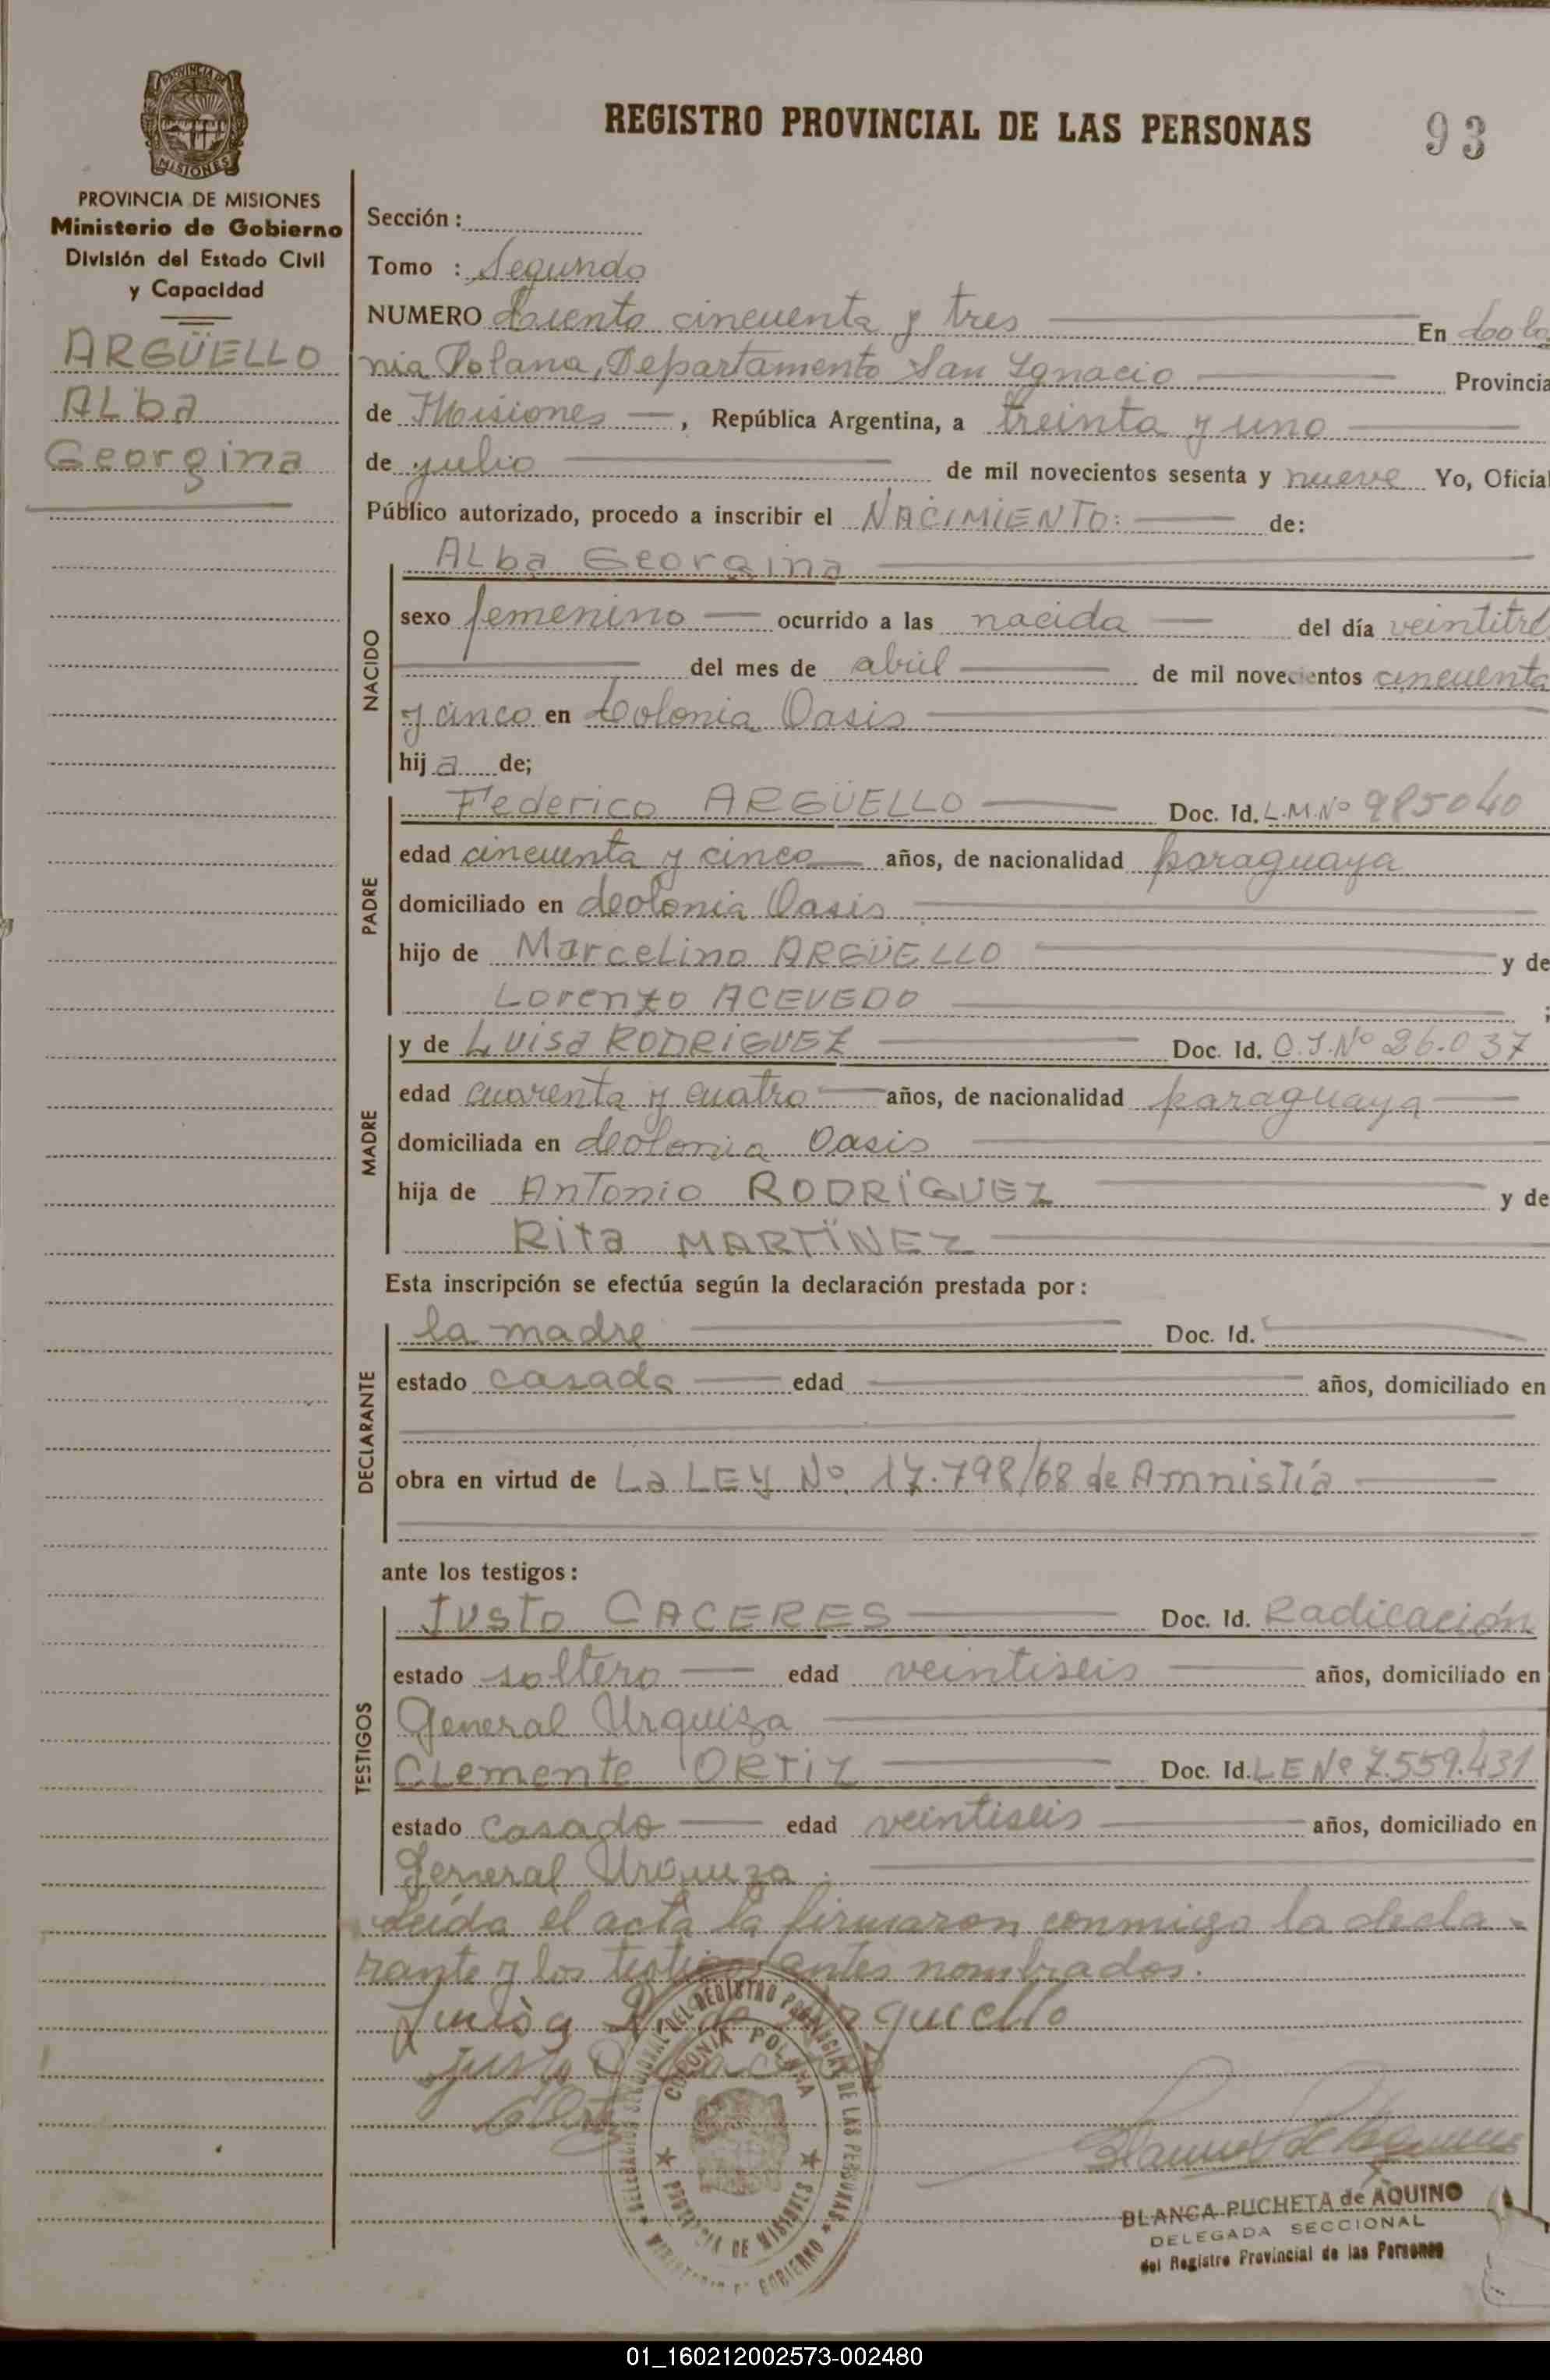 REGISTRO PROVINCIAL DE LAS PERSONAS
93
PROVINCIA DE MISIONES
MISIONES
PROVINCIA DE MISIONES
Ministerio de Gobierno
División del Estado Civil
y Capacidad
ARGÜELLO
ALba
Georgina
Sección :
Tomo : Segundo
NUMERO ciento cincuenta y tres En Colo
nia Polana, Departamento San Ignacio Provincia
de Misiones , República Argentina, a treinta y uno
de julio de mil novecientos sesenta y nueve Yo, Oficial
Público autorizado, procedo a inscribir el NACIMIENTO: de:
NACIDO
ALba Georgina
sexo femenino ocurrido a las nacida del día veintitré
del mes de abril de mil novecientos cincuenta
y cinco en Colonia Oasis
hij a de;
PADRE
Federico ARGÜELLO Doc. Id. L.M.Nº 985040
edad cincuenta y cinco años, de nacionalidad paraguaya
domiciliado en Colonia Oasis
hijo de Marcelino ARGÜELLO y de
Lorenzo ACEVEDO ;
MADRE
y de Luisa RODRIGUEZ Doc. Id. C.I.Nº 26.037
edad cuarenta y cuatro años, de nacionalidad paraguaya
domiciliada en Colonia Oasis
hija de Antonio RODRÍGUEZ y de
Rita MARTÏNEZ
Esta inscripción se efectúa según la declaración prestada por :
DECLARANTE
la madre Doc. Id.
estado casada edad años, domiciliado en
obra en virtud de La LEY Nº 17.798/68 de Amnistía
ante los testigos :
TESTIGOS
Justo CACERES Doc. Id. Radicación
estado soltero edad veintiseis años, domiciliado en
General Urquiza
CLemente ORTIZ Doc. Id. LE Nº 7.559.431
estado casado edad veintiseis años, domiciliado en
General Urquiza .
Leída el acta la firmaron conmigo la decla-
rante y los testigos antes nombrados.
COLONIA POLANA
PROVINCIA DE MISIONES
DELEGACION SECCIONAL DEL REGISTRO PROVINCIAL DE LAS PERSONAS
MINISTERIO DE GOBIERNO
BLANCA PUCHETA de AQUINO
DELEGADA SECCIONAL
del Registro Provincial de las Personas
01_160212002573-002480